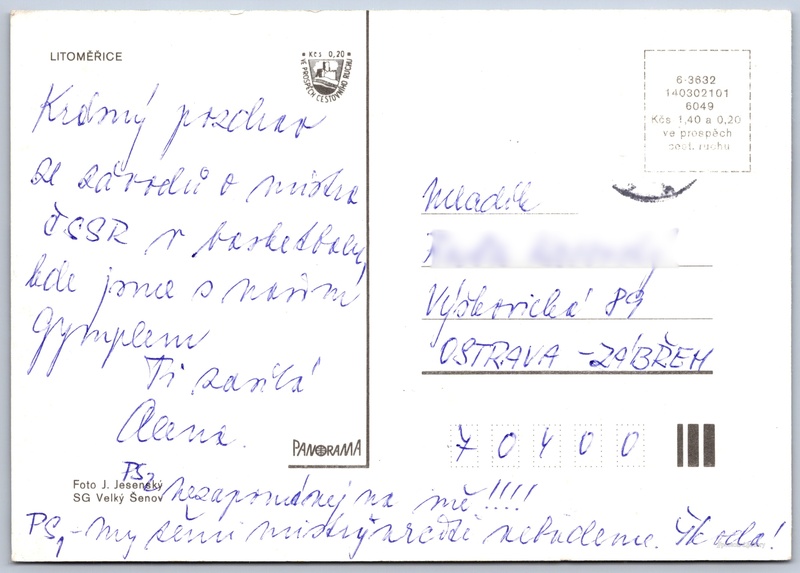 LITOMĚŘICE
Kčs 0,20
VE PROSPĚCH CESTOVNÍHO RUCHU
Krásný pozdrav
ze závodů o mistra
ČSSR v basketbalu,
kde jsme s naším
Gymplem
Ti zasílá
Alena.
PANORAMA
Foto J. Jesenský
SG Velký Šenov
PS2 nezapomínej na mě!!!!
PS1 - my těmi mistry určitě nebudeme. Škoda!
6-3632
140302101
6049
Kčs 1,40 a 0,20
ve prospěch
cest. ruchu
Mládík
Výškovická 89
OSTRAVA - ZÁBŘEH
70400